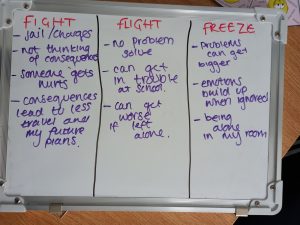 FIGHT
- Jail/charges
- not thinking of consequences
- someone gets hurts
- consequences lead to less travel and my future plans.
FLIGHT
- no problem solve
- can get in trouble at school.
- can get worse if left alone.
FREEZE
- Problems can get bigger
- emotions build up when ignored
- being alone in my room